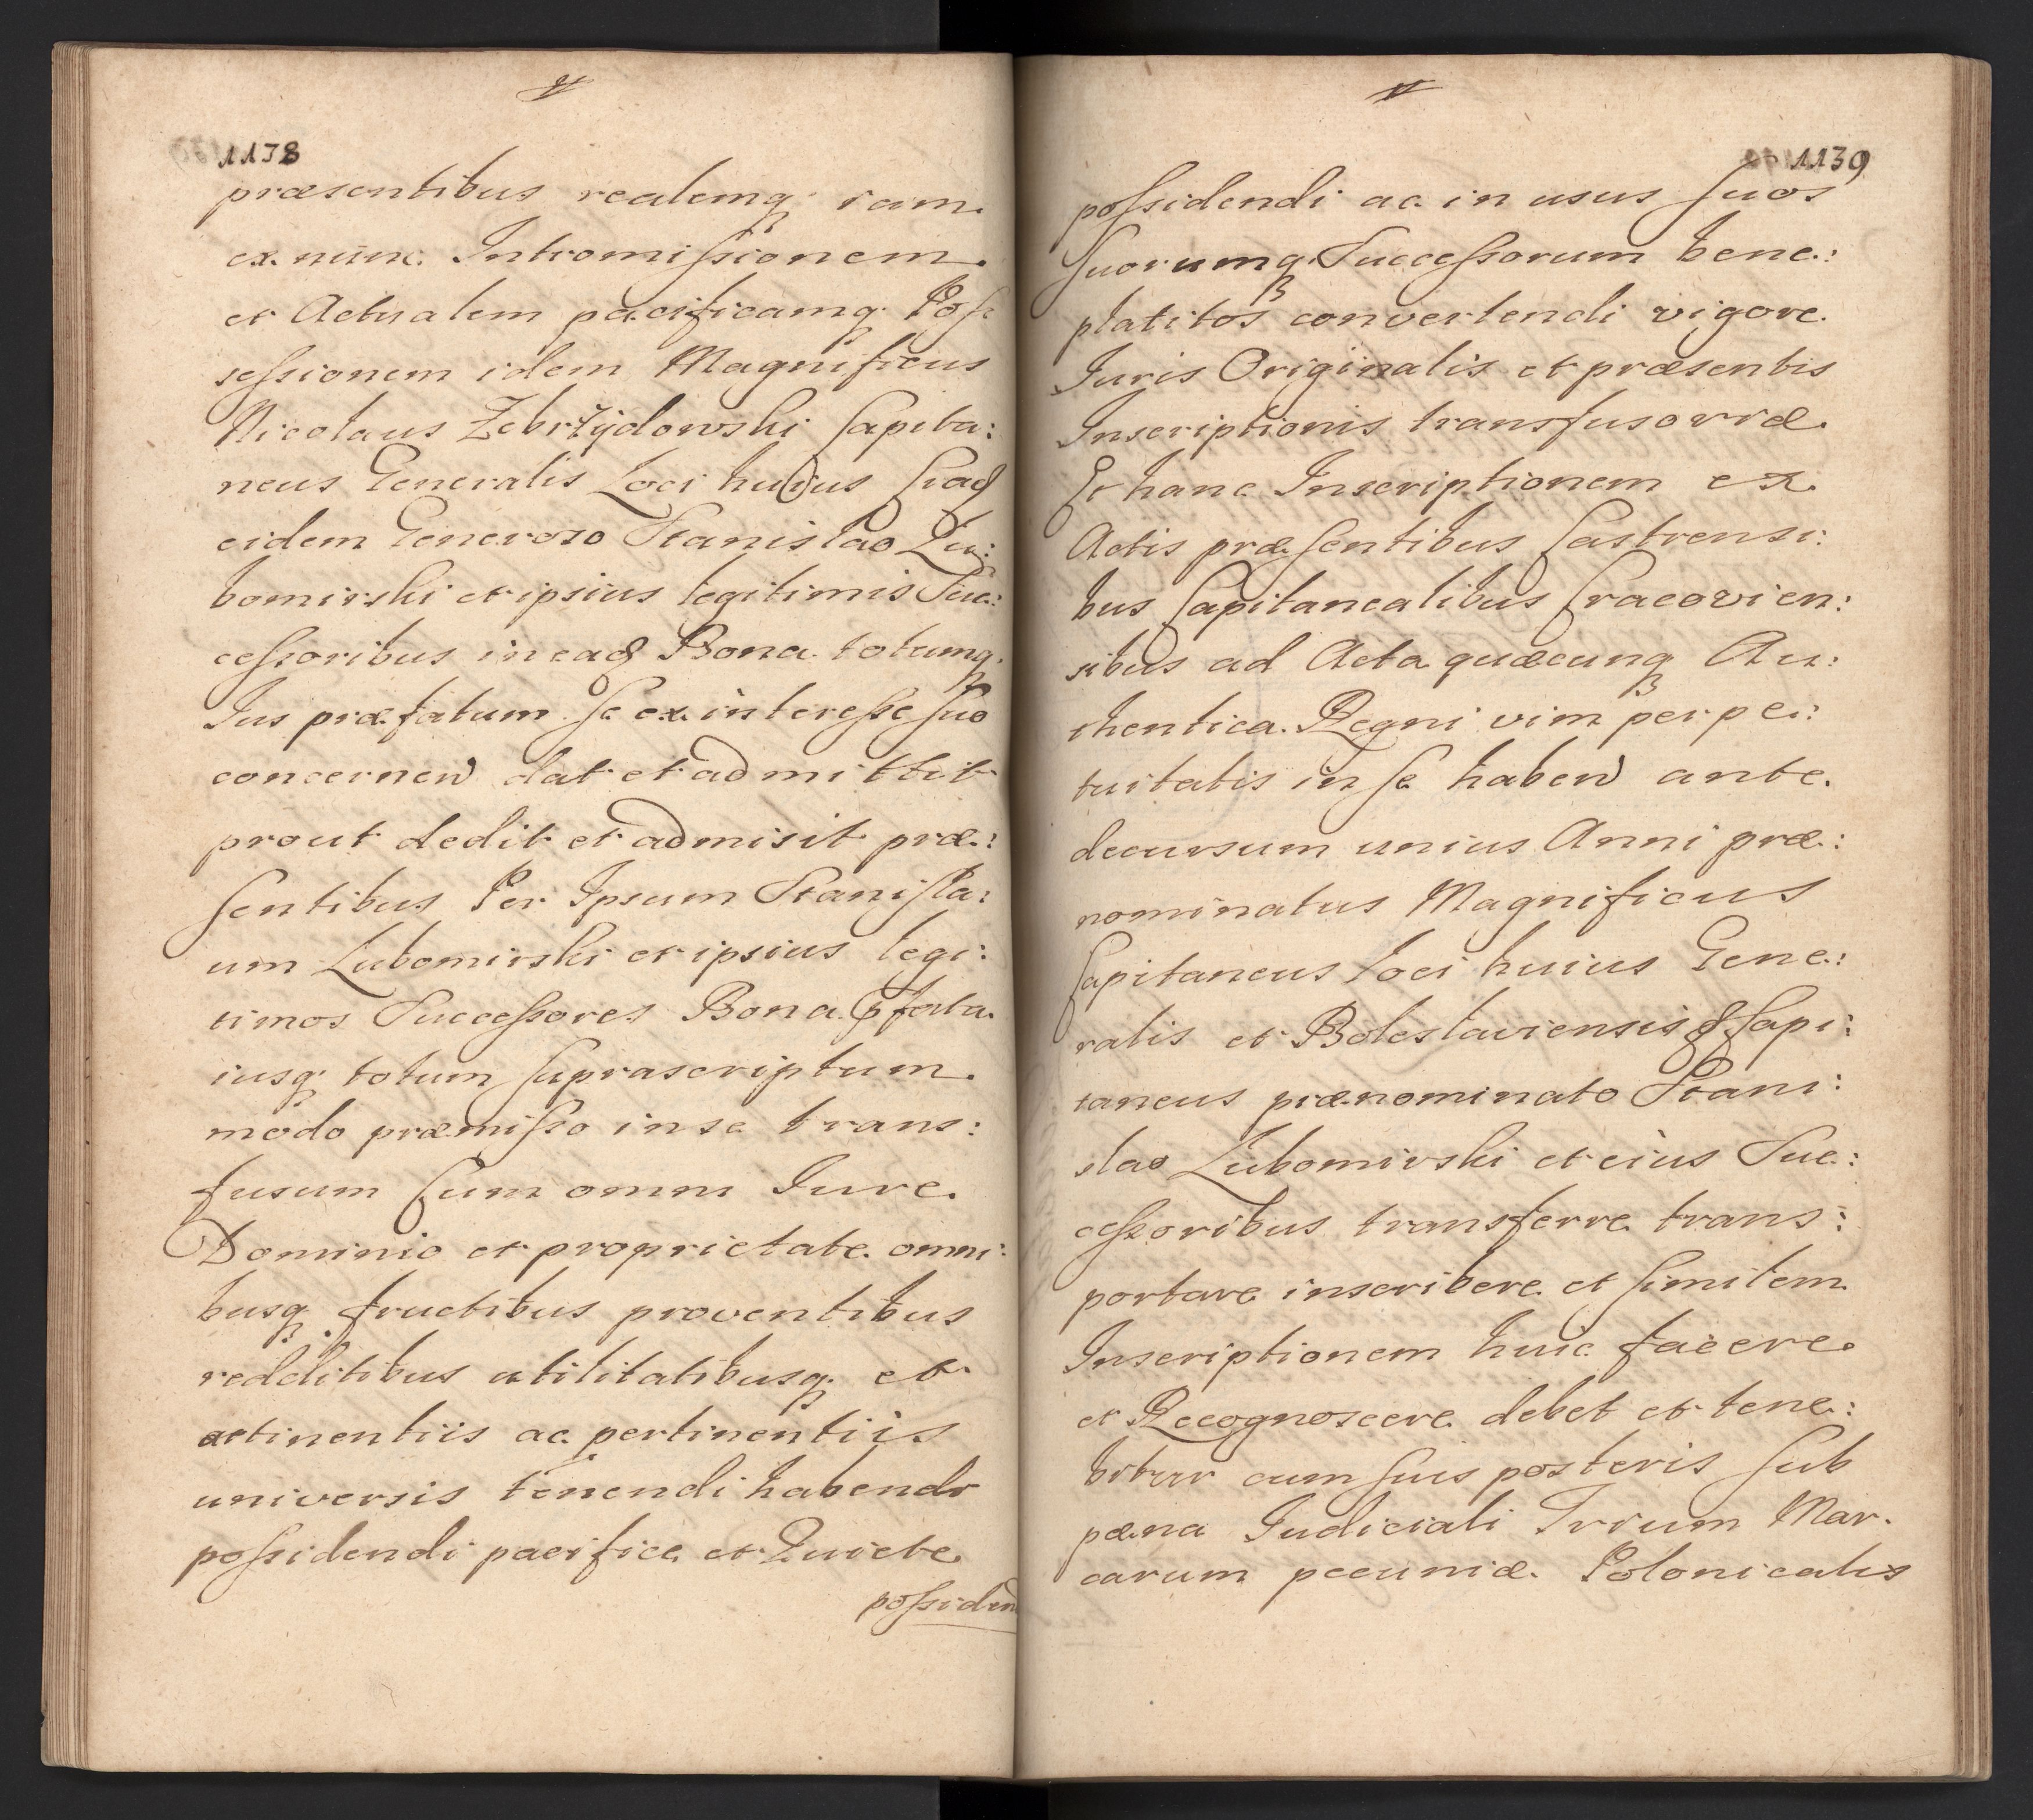 1138
præsentibus realemq iam
ex nunc Intromißionem
et Actualem pacificamq Poss
seßionem idem Magnificus
Nicolaus Zebrżÿdowski Capita:
neus Generalis Loci huius
eidem Generoso Stanislao Lu:
bomirski et ipsius legitimis Suc:
ceßoribus in ead Bona totumq
Ius præfatum se ex intereße suo
concernen dat et admittit
prout dedit et admisit præ:
sentibus Per Ipsum Stanisla:
um Lubomirski et ipsius legi:
timos Succeßores Bona pfata
iusq totum suprascriptum
modo præmißo in se trans:
fusum Cum omni Iure
Dominio et proprietate omni:
busq fructibus proventibus
redditibus utilitatibusq et
attinentiis ac pertinentiis
universis tenendi habendi
poßidendi pacifice et Quiete
poßiden
1139
poßidendi ac in usus suos
suorumq Succeßorum bene:
platitos convertendi vigore
Iuris Originalis et præsentis
Inscriptionis transfusorræ
Et hanc Inscriptionem ex
Actis præsentibus Castrensi:
bus Capitanealibus Cracovien:
sibus ad Acta quæcunq Au:
thentica Regni vim perpe:
tuitatis in se haben ante
decursum unius Anni præ:
nominatus Magnificus
Capitaneus loci huius Gene:
ralis et Boleslaviensis & Capi:
taneus prænominato Stani:
slao Lubomirski et eius Suc:
ceßoribus transferre trans:
portare inscribere et similem
Inscriptionem huic facere
et Recognoscere debet et tene:
bitur cum suis posteris sub
pæna Iudiciali Trium Mar.
carum pecuniæ Polonicalis